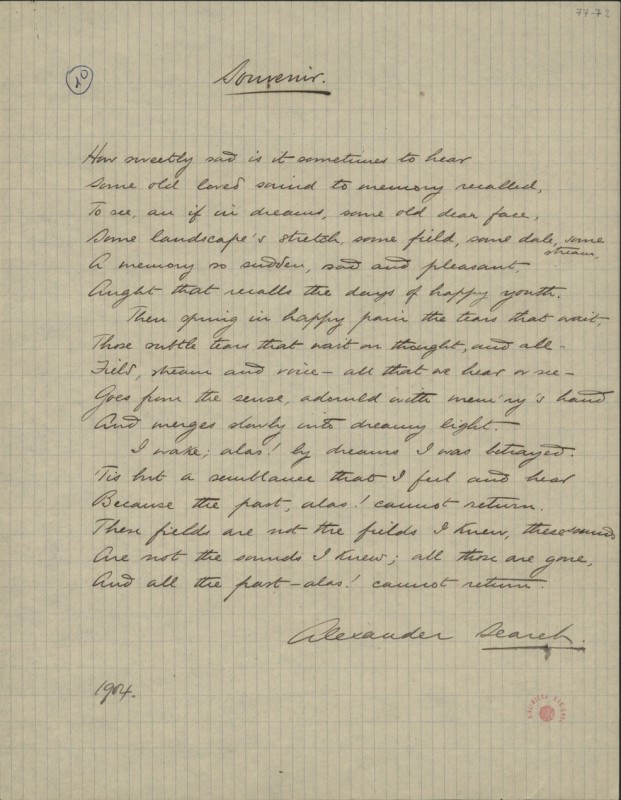 77-72
10
Souvenir.
How sweetly sad is it sometimes to hear
Some old loved sound to memory recalled,
To see, as if in dreams, some old dear face,
Some landscape's stretch, some field, some dale, some
stream,
A memory so sudden, sad and pleasant,
Aught that recalls the days of happy youth.
Then spring in happy pain the tears that wait,
Those subtle tears that wait on thought, and all –
Field, stream and voice – all that we hear or see –
Goes from the sense, adorned with mem'ry's hand
And merges slowly into dreamy light.
I wake; alas! by dreams I was betrayed.
'Tis but a semblance that I feel and hear
Because the past, alas! cannot return.
These fields are not the fields I knew, these sounds
Are not the sounds I knew; all those are gone,
And all the past – alas! cannot return.
Alexander Search.
1904.